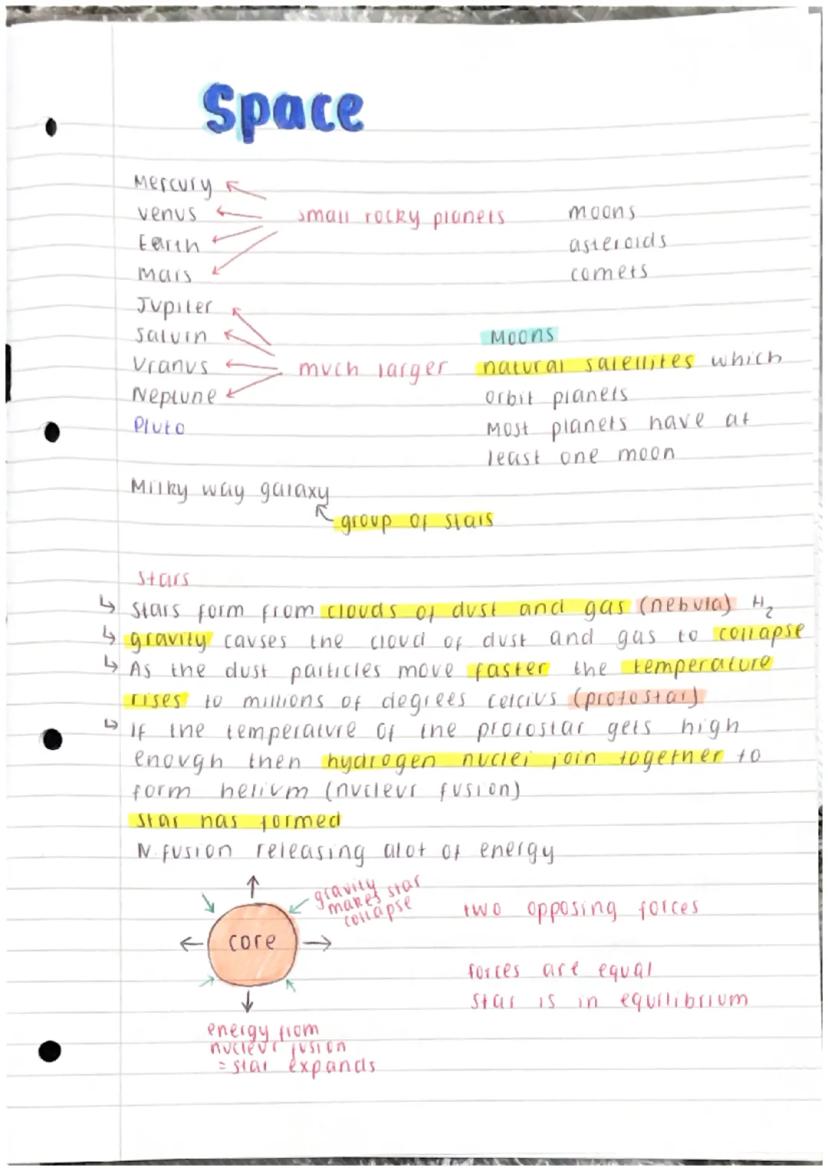 Space
Mercury
venus
small rocky planets
moons
Earth
asteroids
Mars
comets
Jupiter
Saturn
Moons
Uranus
much larger
natural satellites which
Neptune
orbit planets
Pluto
Most planets have at
least one moon
Milky way galaxy
group of stars
stars
↳ Stars form from clouds of dust and gas (nebula) H₂
↳ gravity causes the cloud of dust and gas to collapse
↳ As the dust particles move faster the temperature
rises to millions of degrees celcius (protostar)
↳ If the temperature of the protostar gets high
enough then hydrogen nuclei join together to
form helium (nucleur fusion)
Star has formed
N.fusion releasing alot of energy
gravity
makes star
collapse
two opposing forces
core
forces are equal
star is in equilibrium
energy from
nucleur fusion
= star expands